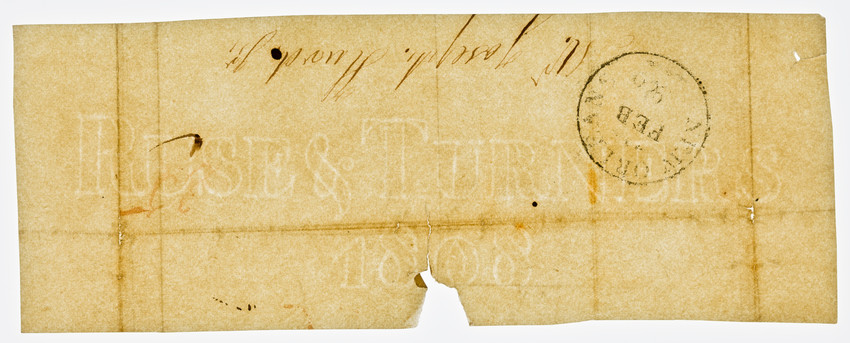 Mr Joseph Jr.
NEW ORLEANS
FEB
RUSE & TURNERS
1808